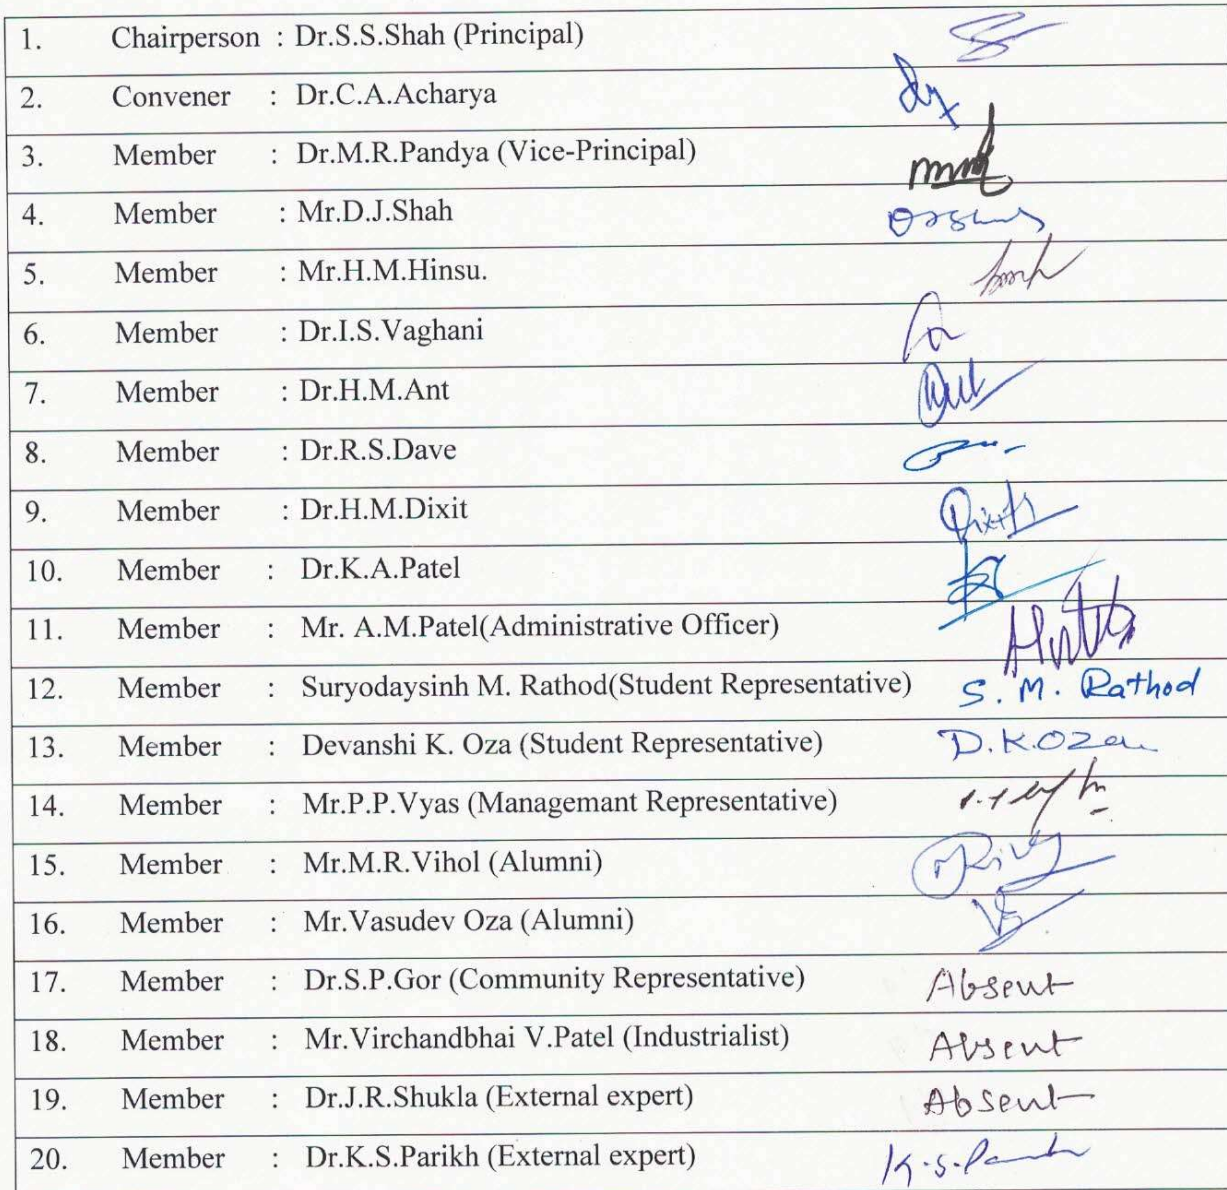 1. Chairperson : Dr.S.S.Shah (Principal)
2. Convener : Dr.C.A.Acharya
3. Member : Dr.M.R.Pandya (Vice-Principal)
4. Member : Mr.D.J.Shah
5. Member : Mr.H.M.Hinsu.
6. Member : Dr.I.S.Vaghani
7. Member : Dr.H.M.Ant
8. Member : Dr.R.S.Dave
9. Member : Dr.H.M.Dixit Dixit
10. Member : Dr.K.A.Patel
11. Member : Mr. A.M.Patel(Administrative Officer)
12. Member : Suryodaysinh M. Rathod(Student Representative) S. M. Rathod
13. Member : Devanshi K. Oza (Student Representative) D.K.Oza
14. Member : Mr.P.P.Vyas (Managemant Representative)
15. Member : Mr.M.R.Vihol (Alumni)
16. Member : Mr.Vasudev Oza (Alumni)
17. Member : Dr.S.P.Gor (Community Representative) Absent
18. Member : Mr.Virchandbhai V.Patel (Industrialist) Absent
19. Member : Dr.J.R.Shukla (External expert) Absent
20. Member : Dr.K.S.Parikh (External expert) K.S.Parikh